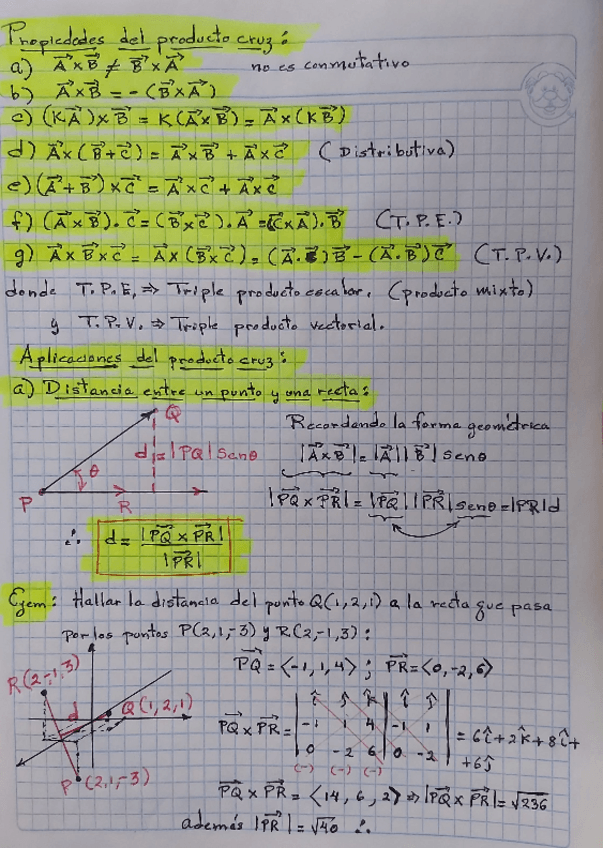 Propiedades del producto cruz:
a) A⃗×B⃗ ≠ B⃗×A⃗ no es conmutativo
b) A⃗×B⃗ = -(B⃗×A⃗)
c) (KA⃗)×B⃗ = K(A⃗×B⃗) = A⃗×(KB⃗)
d) A⃗×(B⃗+C⃗) = A⃗×B⃗ + A⃗×C⃗ (Distributiva)
e) (A⃗+B⃗)×C⃗ = A⃗×C⃗ + A⃗×C⃗
f) (A⃗×B⃗)·C⃗ = (B⃗×C⃗)·A⃗ = (C⃗×A⃗)·B⃗ (T.P.E.)
g) A⃗×B⃗×C⃗ = A⃗×(B⃗×C⃗) = (A⃗·C⃗)B⃗ - (A⃗·B⃗)C⃗ (T.P.V.)
donde T.P.E, ⇒ Triple producto escalar. (producto mixto)
y T.P.V. ⇒ Triple producto vectorial.
Aplicaciones del producto cruz:
a) Distancia entre un punto y una recta:
Q
d = |PQ| Senθ
θ
P R
Recordando la forma geométrica
|A⃗×B⃗| = |A⃗| |B⃗| senθ
|PQ⃗ × PR⃗| = |PQ⃗| |PR⃗| senθ = |PR| d
∴ d = |PQ⃗ × PR⃗| / |PR⃗|
Ejem: Hallar la distancia del punto Q(1,2,1) a la recta que pasa
por los puntos P(2,1,-3) y R(2,-1,3):
R(2,-1,3)
d Q(1,2,1)
P(2,1,-3)
PQ⃗ = ⟨-1, 1, 4⟩ ; PR⃗ = ⟨0, -2, 6⟩
PQ⃗ × PR⃗ = | î ĵ k̂ | î ĵ |
-1 1 4 -1 1
0 -2 6 0 -2
(-) (-) (-)
= 6î + 2k̂ + 8î +
+6ĵ
PQ⃗ × PR⃗ = ⟨14, 6, 2⟩ ⇒ |PQ⃗ × PR⃗| = √236
además |PR⃗| = √40 ∴